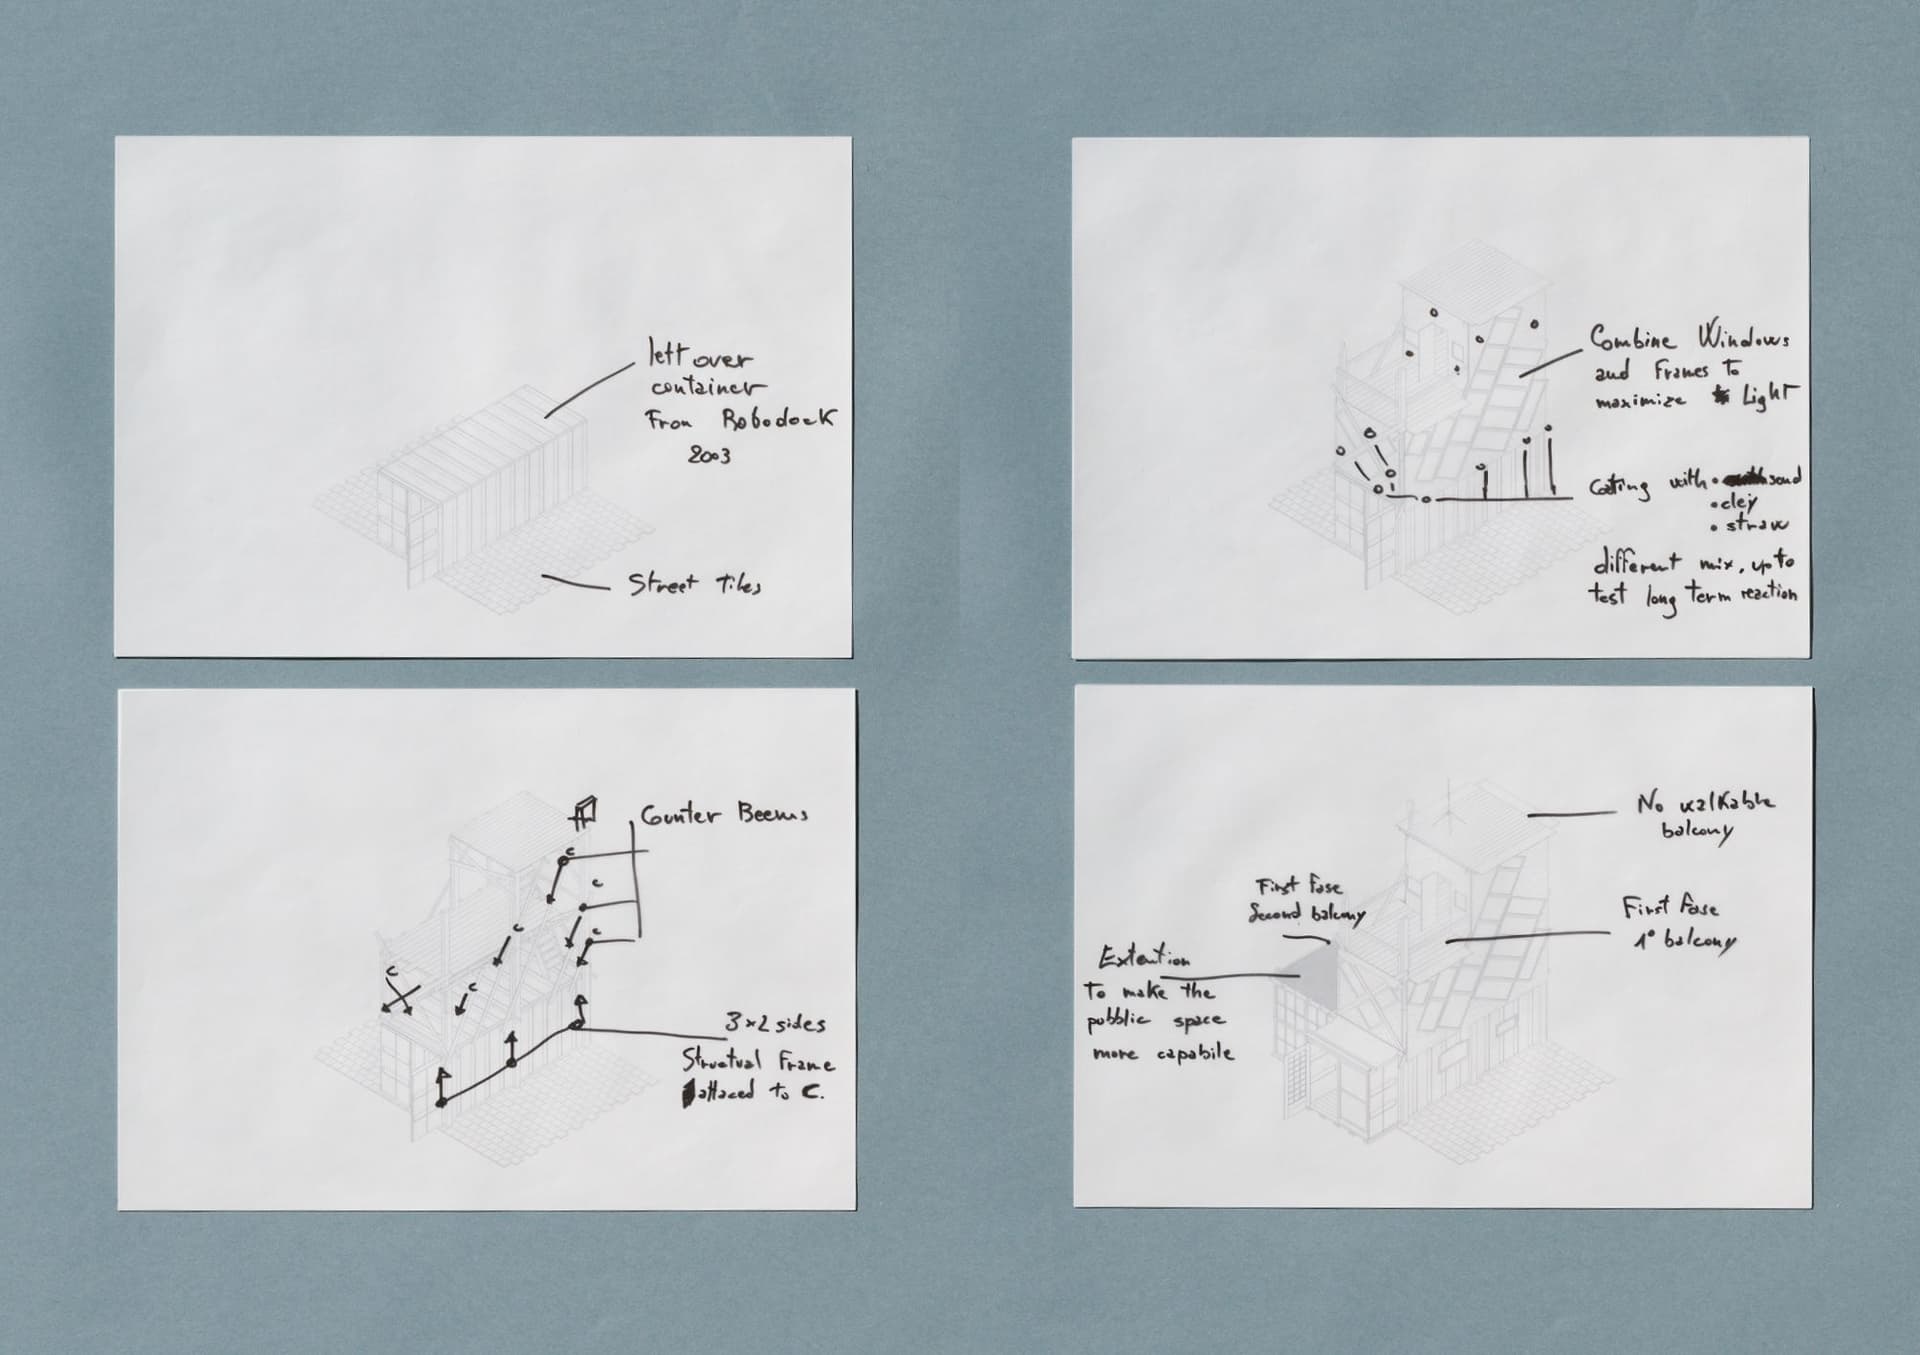 left over
container
From Robodock
2003
Street Tiles
Combine Windows
and Frames To
maximize Light
Coating with • sand
• clay
• straw
different mix, up to
test long term reaction
Counter Beems
c
c
c
c
c
c
3x2 sides
Structual Frame
attaced to C.
No walkable
balcony
First Fase
Second balcony
First Fase
1° balcony
Extention
To make the
pubblic space
more capabile